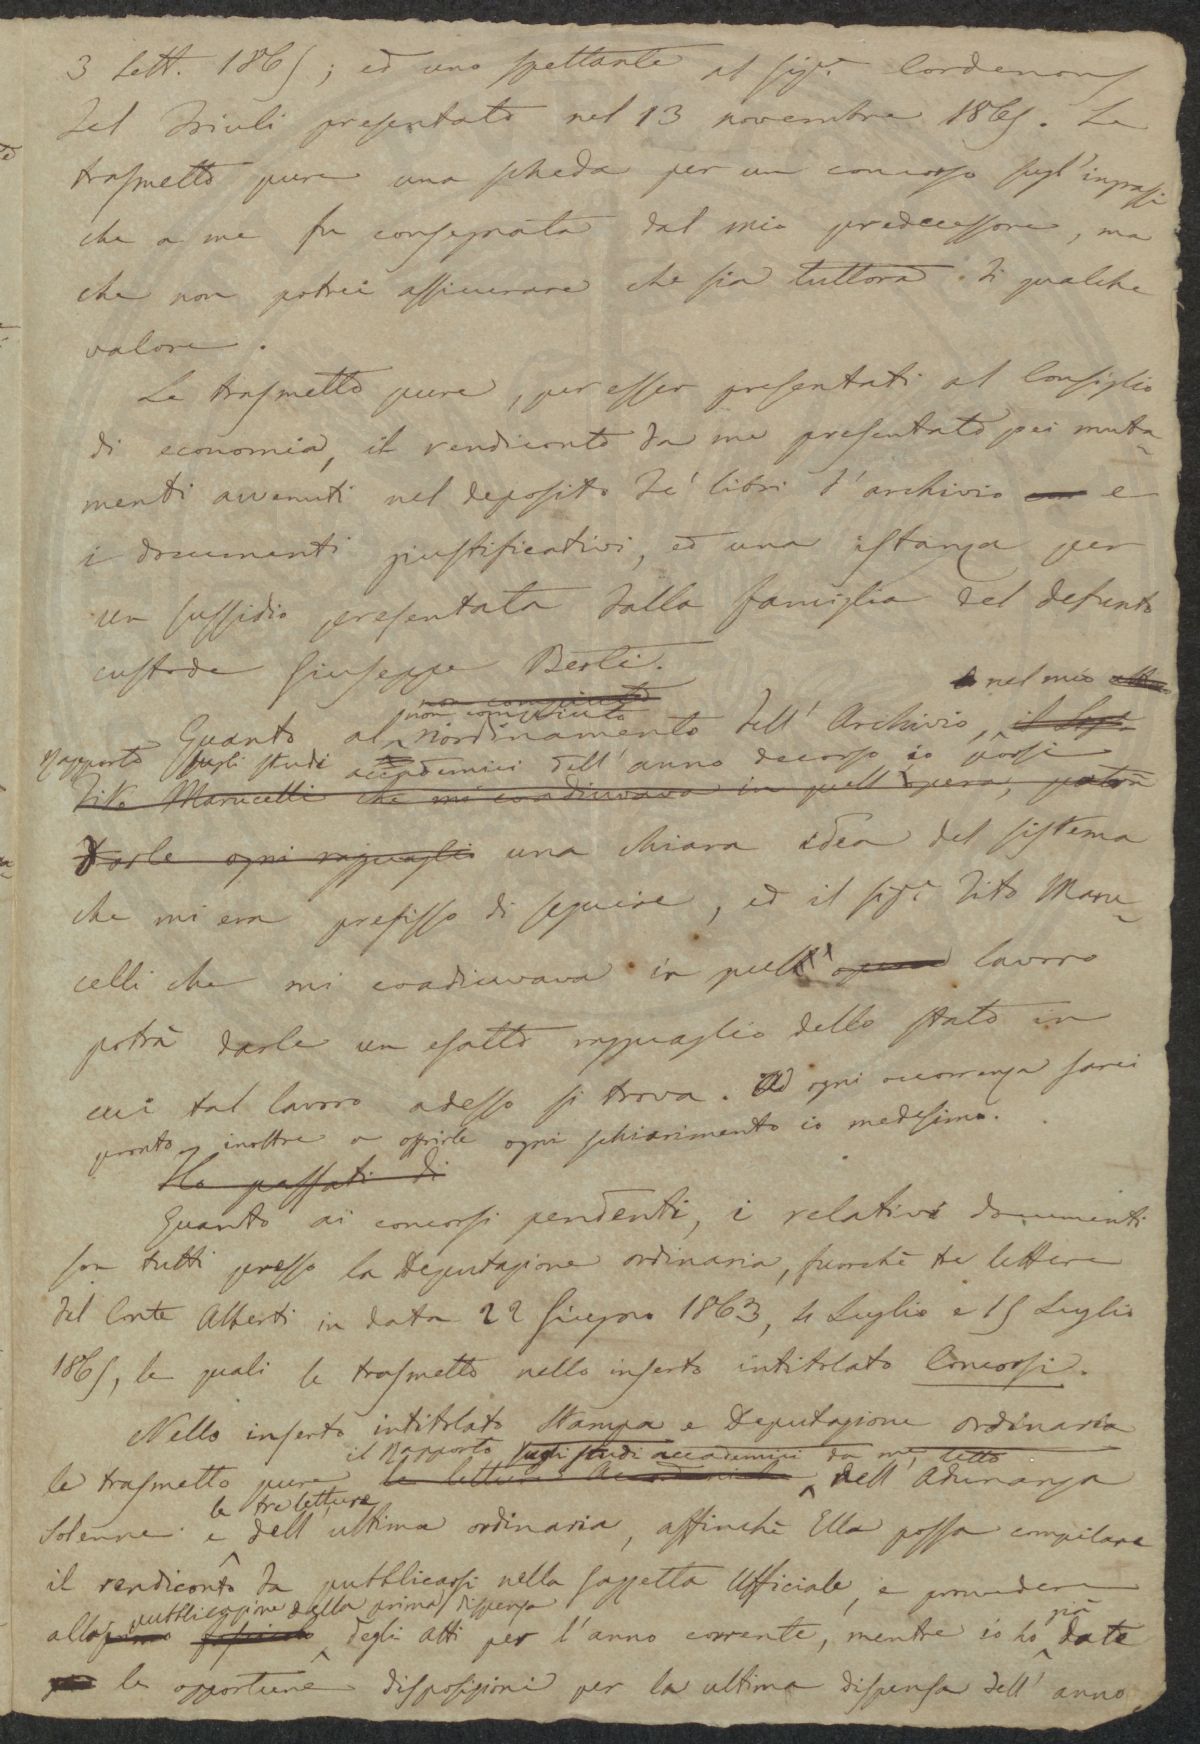 3 Sett. 1865; ed uno spettante al sigr. Cordenons
del Friuli presentato nel 13 novembre 1865. Le
trasmetto pure una scheda per un concorso sugl'ingrassi
che a me fu consegnata dal mio predecessore, ma
che non potrei assicurare che sia tuttora di qualche
valore.
Le trasmetto pure, per esser presentati al Consiglio
di economia, il rendiconto da me presentato pei muta-
menti avvenuti nel deposito de' libri d'archivio e
i documenti giustificativi, ed una istanza per
un sussidio presentata dalla famiglia del defunto
custode Giuseppe Berti.
non compiuto
nel mio
non compiuto
Quanto al riordinamento dell'Archivio,
Rapporto sugli studi accademici dell'anno decorso io porsi
Tito Marucelli che mi coadiuvava in quell'opera, potrà
darle ogni ragguaglio una chiara idea del sistema
che mi era prefisso di seguire, ed il sigr. Tito Maru-
celli che mi coadiuvava in quel opera lavoro
potrà darle un esatto ragguaglio dello stato in
cui tal lavoro adesso si trova. Ad ogni occorrenza sarei
pronto inoltre a offrirle ogni schiarimento io medesimo.
Ho passati di
Quanto ai concorsi pendenti, i relativi documenti
son tutti presso la Deputazione ordinaria, fuorchè tre lettere
del Conte Alberti in data 22 Giugno 1863, 4 Luglio e 15 Luglio
1865, le quali le trasmetto nello inserto intitolato Concorsi.
Nello inserto intitolato Stampa e Deputazione ordinaria
il Rapporto sugli studi accademici da me letto
le trasmetto pure le letture dell'Adunanza
le tre letture
solenne e dell'ultima ordinaria, affinchè Ella possa compilare
il rendiconto da pubblicarsi nella Gazzetta Ufficiale, e provvedere
pubblicazione dalla prima dispensa
già
alla primo fascicolo degli atti per l'anno corrente, mentre io ho date
le opportune disposizioni per la ultima dispensa dell'anno